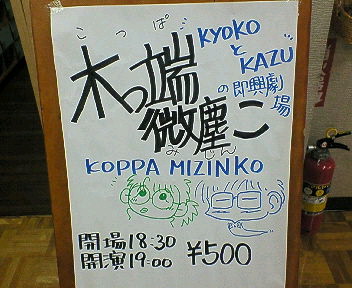 こっぱ
KYOKO
と
KAZU
の即興劇場
木っ端
微塵こ
みじん
KOPPA MIZINKO
開場18:30
開演19:00
¥500